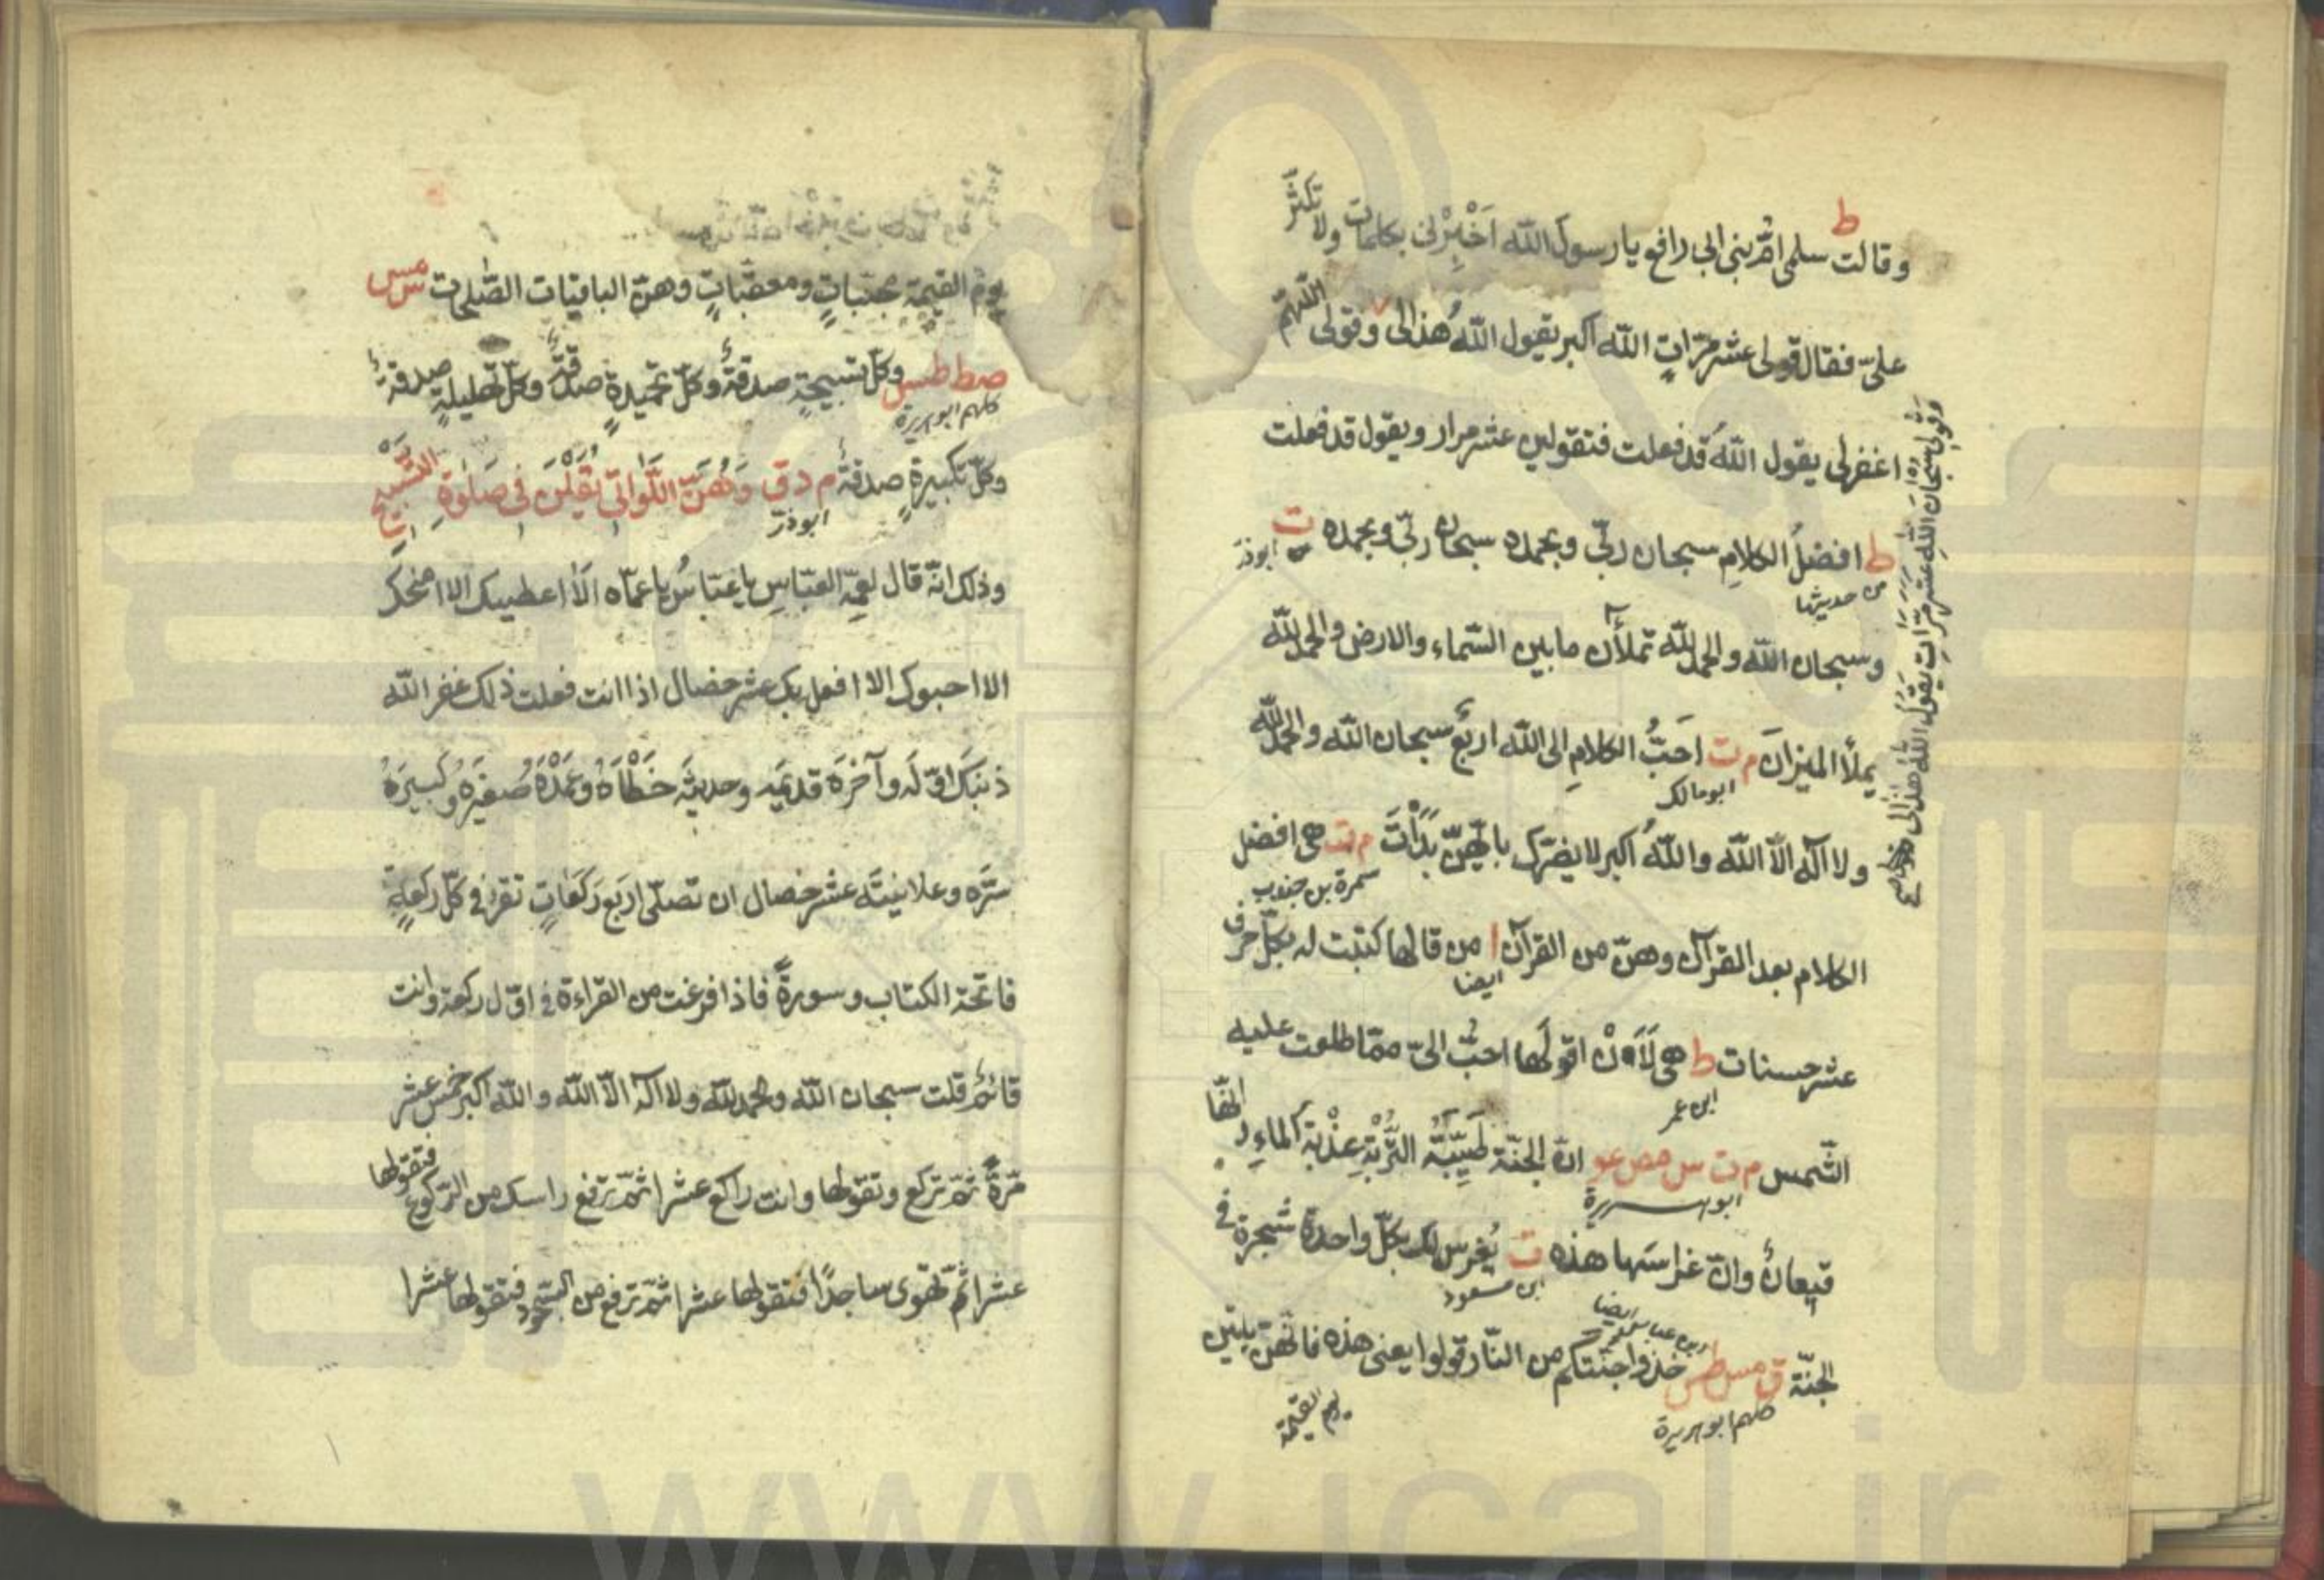 ط
وقالت سلمى امّ بنى ابى رافع يا رسول الله اَخْبِرْنى بكلمات ولا تكثّر
علىّ فقال قولى عشر مرّاتٍ الله اكبر يقول اللهُ هذا لى وقولى اللّهمّ
اغفر لى يقول اللهُ قد فعلت فتقولين عشر مرار ويقول قد فعلت
وقولى سبحان اللهِ عشر مرّات يقول الله هذا لى
ط افضلُ الكلامِ سبحان ربّى وبحمده سبحان ربّى وبحمده ت
من حديثها
ابوذر
وسبحان الله والحمد لله تملأٰن ما بين السّماء والارض والحمد لله
يملأ الميزانَ م ت احَبُّ الكلامِ الى الله اربع سبحان الله والحمد لله
ابو مالك
ولا اله الّا الله واللهُ اكبر لا يضرّك بايّهنّ بَدَأْتَ م ت هى افضل
سمرة بن جندب
الكلام بعد القرآن وهنّ من القرآن ا من قالها كتبت له بكلّ حرف
ايضا
عشر حسنات ط هى لَاَنْ اقولَها احبّ الىّ ممّا طلعت عليه
ابن عمر
الشّمس م ت س مص عو انّ الجنّة طَيِّبَةُ التُّرْبَةِ عذْبةُ الماءِ وانّها
ابو هريرة
قيعانٌ وانّ غراسَها هذه ت يُغرس لك بكلّ واحدة شجرة فى
ابن مسعود
ابن عباس ايضا
الجنّة ق مس ط خذوا جنّتكم من النّار قولوا يعنى هذه فانّهنّ يأتين
كلهم ابو هريرة
يوم القيمة
يومَ القيٰمةِ مجنّباتٍ ومعقّباتٍ وهنّ الباقيات الصّٰلحٰت س مس
صط طس وكلّ تسبيحةٍ صدقةٌ وكلّ تحميدةٍ صدقةٌ وكلّ تهليلةٍ صدقةٌ
كلهم ابو هريرة
وكلّ تكبيرةٍ صدقةٌ م د ق وَهُنَّ اللَّوَاتِى يُقَلْنَ فى صَلٰوةِ التّسبيح
ابوذر
وذلك انّه قال لعمّه العبّاسِ يا عبّاسُ يا عمّاه الَا اعطيك الا امنحك
الا احبوك الا افعل بك عشر خصال اذا انت فعلت ذلك غفر الله
ذنبَكَ اوّلَه وآخرَه قديمَه وحديثَه خَطْأَهُ وعَمْدَهُ صغيرَه وكبيرَهُ
سرَّه وعلانيتَه عشر خصال ان تصلّى اربع ركعاتٍ تقرأ فى كلّ ركعةٍ
فاتحة الكتاب وسورةً فاذا فرغت من القراءة فى اوّل ركعة وانت
قائمٌ قلت سبحان الله والحمد لله ولا اله الّا الله والله اكبر خمس عشر
مرّةً ثمّ تركع وتقولها وانت راكع عشرا ثمّ ترفع راسك من الرّكوع فتقولها
عشرا ثمّ تهوى ساجدًا فتقولها عشرا ثمّ ترفع من السّجود فتقولها عشرا
www.ical.ir